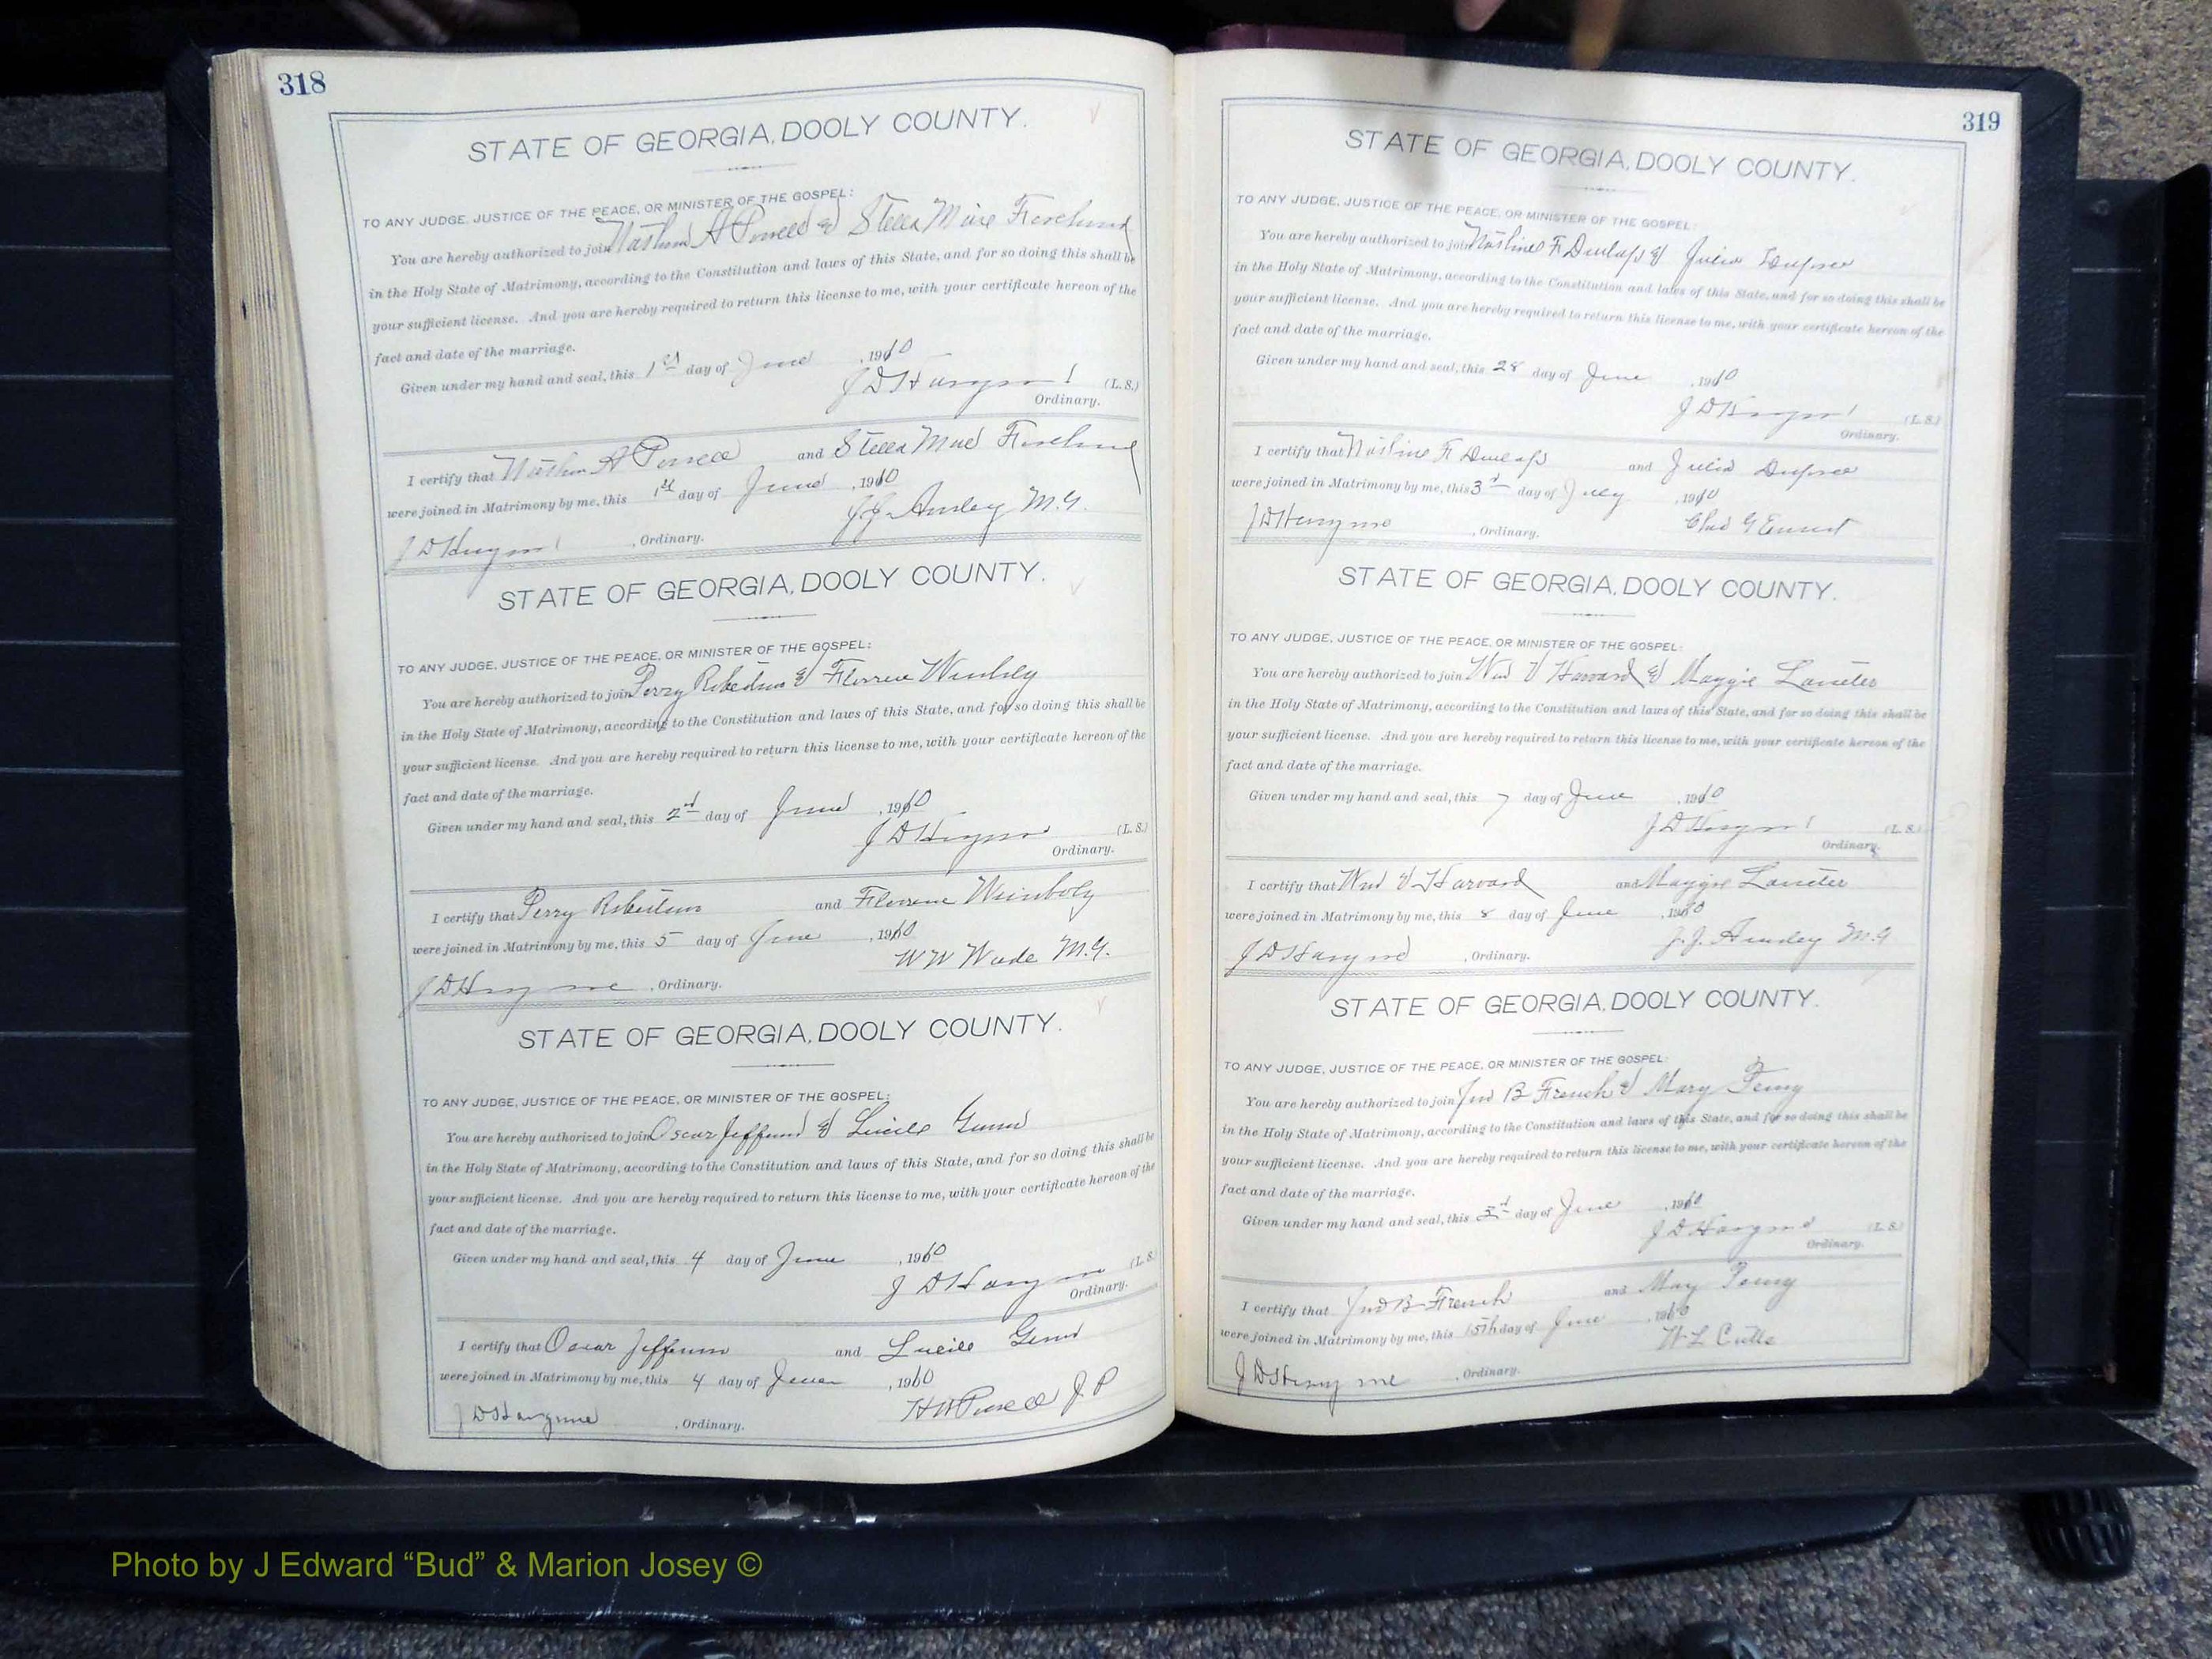 318
STATE OF GEORGIA, DOOLY COUNTY.
TO ANY JUDGE, JUSTICE OF THE PEACE, OR MINISTER OF THE GOSPEL:
You are hereby authorized to join A Powell & Stella
in the Holy State of Matrimony, according to the Constitution and laws of this State, and for so doing this shall be
your sufficient license. And you are hereby required to return this license to me, with your certificate hereon of the
fact and date of the marriage.
Given under my hand and seal, this 1st day of June, 1910
J D (L. S.)
Ordinary.
I certify that A Powell and Stella Mae
were joined in Matrimony by me, this 1st day of June, 1910
J D , Ordinary. J J M.G.
STATE OF GEORGIA, DOOLY COUNTY.
TO ANY JUDGE, JUSTICE OF THE PEACE, OR MINISTER OF THE GOSPEL:
You are hereby authorized to join Perry Robertson & Florrene
in the Holy State of Matrimony, according to the Constitution and laws of this State, and for so doing this shall be
your sufficient license. And you are hereby required to return this license to me, with your certificate hereon of the
fact and date of the marriage.
Given under my hand and seal, this 2nd day of June, 1910
J D (L. S.)
Ordinary.
I certify that Perry Robertson and Florrene
were joined in Matrimony by me, this 5 day of June, 1910
J D , Ordinary. W W Wade M.G.
STATE OF GEORGIA, DOOLY COUNTY.
TO ANY JUDGE, JUSTICE OF THE PEACE, OR MINISTER OF THE GOSPEL:
You are hereby authorized to join Oscar Jefferson & Lucile Gunn
in the Holy State of Matrimony, according to the Constitution and laws of this State, and for so doing this shall be
your sufficient license. And you are hereby required to return this license to me, with your certificate hereon of the
fact and date of the marriage.
Given under my hand and seal, this 4 day of June, 1910
J D (L. S.
Ordinary.
I certify that Oscar Jefferson and Lucile Gunn
were joined in Matrimony by me, this 4 day of June, 1910
J D , Ordinary. J. P
319
STATE OF GEORGIA, DOOLY COUNTY.
TO ANY JUDGE, JUSTICE OF THE PEACE, OR MINISTER OF THE GOSPEL:
You are hereby authorized to join F Dunlap & Julia Dupree
in the Holy State of Matrimony, according to the Constitution and laws of this State, and for so doing this shall be
your sufficient license. And you are hereby required to return this license to me, with your certificate hereon of the
fact and date of the marriage.
Given under my hand and seal, this 28 day of June, 1910
J D (L. S.)
Ordinary.
I certify that F Dunlap and Julia Dupree
were joined in Matrimony by me, this 3rd day of July, 1910
J D , Ordinary. Chas G
STATE OF GEORGIA, DOOLY COUNTY.
TO ANY JUDGE, JUSTICE OF THE PEACE, OR MINISTER OF THE GOSPEL:
You are hereby authorized to join Harvard & Maggie Lassiter
in the Holy State of Matrimony, according to the Constitution and laws of this State, and for so doing this shall be
your sufficient license. And you are hereby required to return this license to me, with your certificate hereon of the
fact and date of the marriage.
Given under my hand and seal, this 7 day of June, 1910
J D (L. S.)
Ordinary.
I certify that Harvard and Maggie Lassiter
were joined in Matrimony by me, this 8 day of June, 1910
J D , Ordinary. J. J. M.G
STATE OF GEORGIA, DOOLY COUNTY.
TO ANY JUDGE, JUSTICE OF THE PEACE, OR MINISTER OF THE GOSPEL:
You are hereby authorized to join Jno B French & Mary
in the Holy State of Matrimony, according to the Constitution and laws of this State, and for so doing this shall be
your sufficient license. And you are hereby required to return this license to me, with your certificate hereon of the
fact and date of the marriage.
Given under my hand and seal, this day of June, 1910
J D (L. S.)
Ordinary.
I certify that Jno B French and May
were joined in Matrimony by me, this 15th day of June, 1910
J D , Ordinary. W L Cutts
Photo by J Edward “Bud” & Marion Josey ©